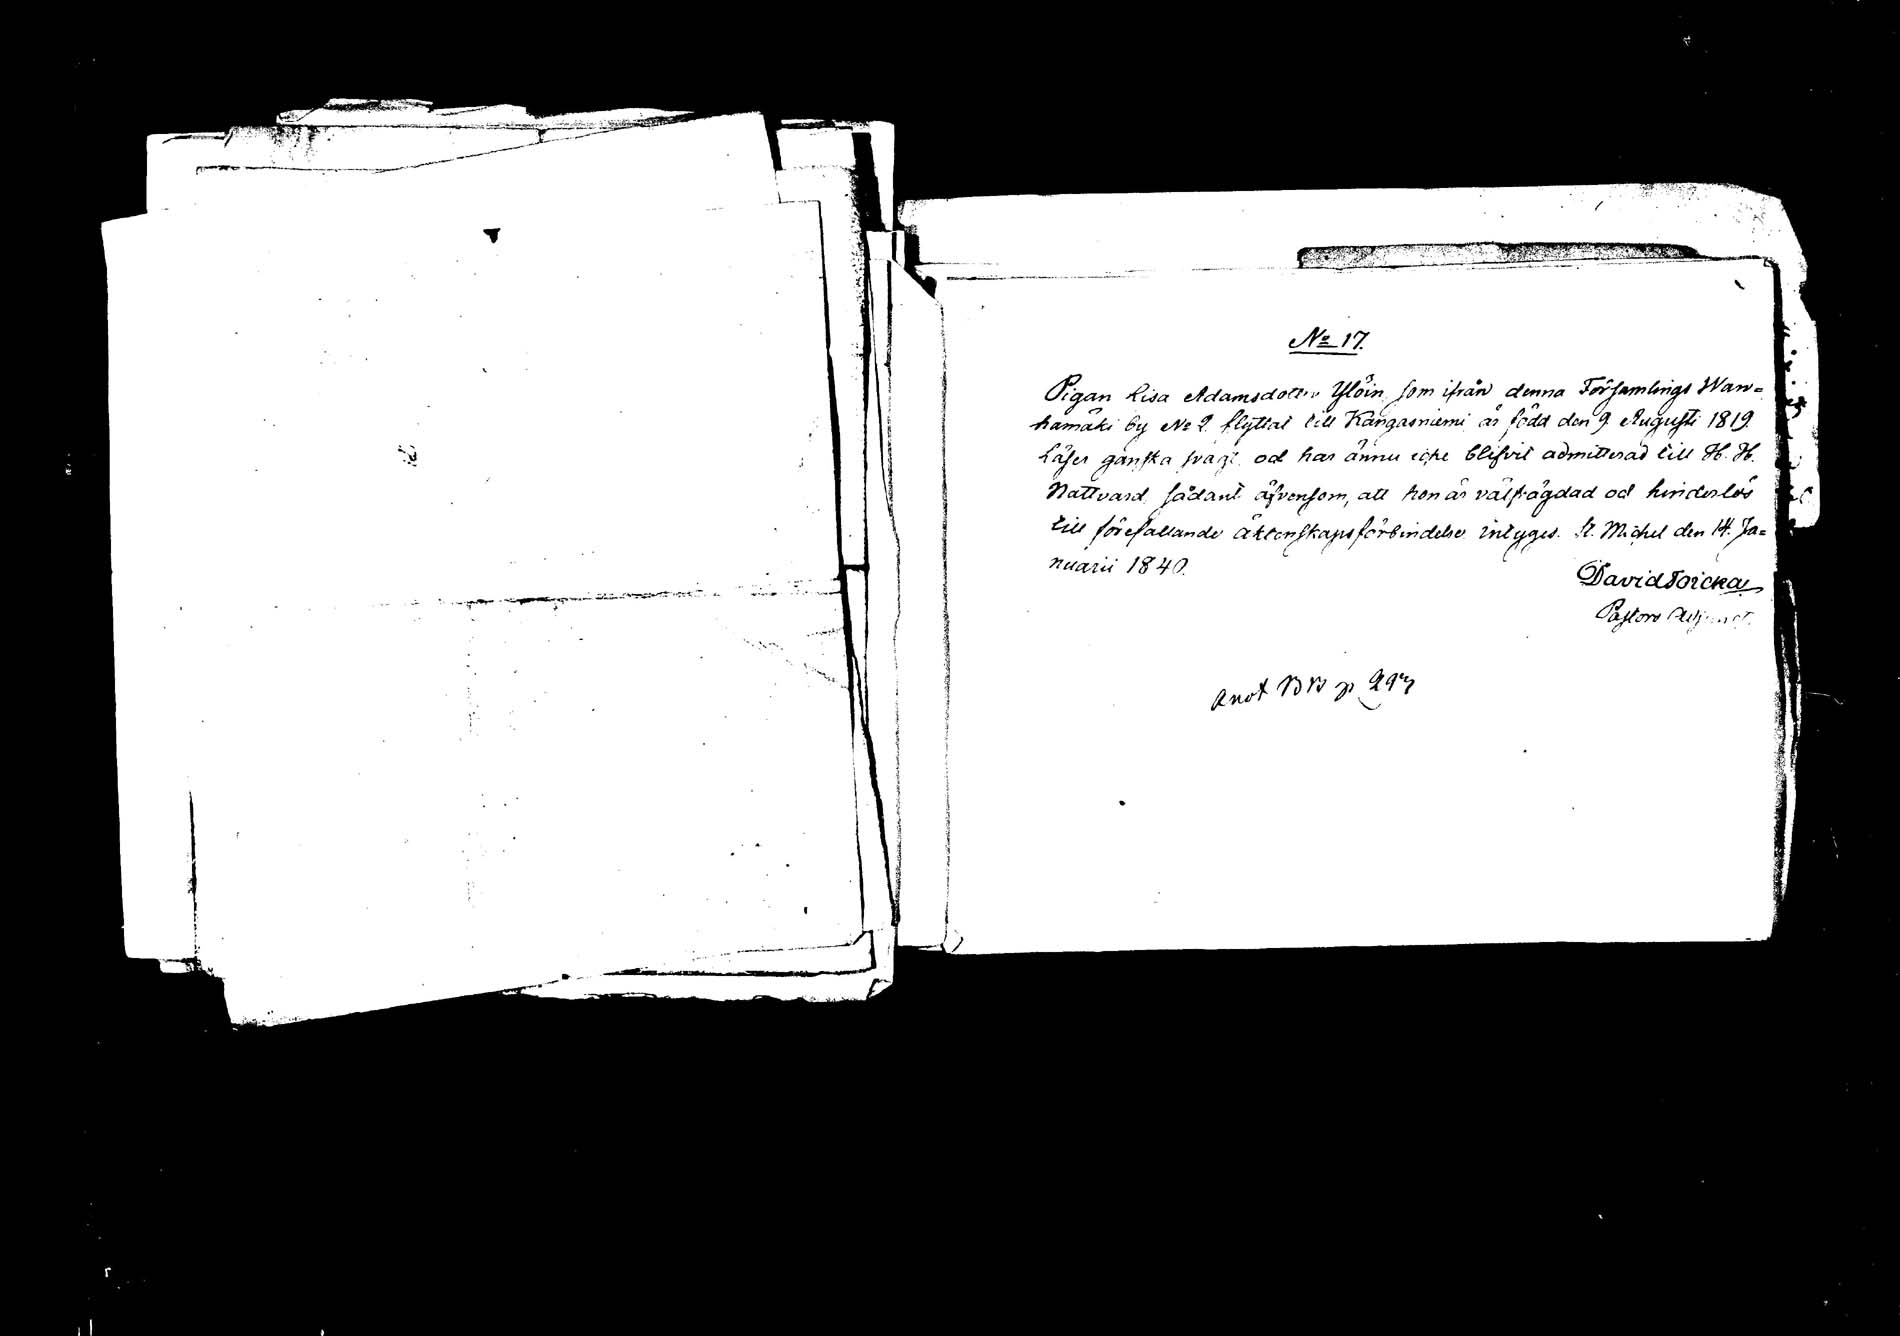 No 17.
Pigan Lisa Adamsdotter Ylöin, som ifrån denna Församlings Wan=
hamäki by No 2. flyttat till Kangasniemi, är född den 9. Augusti 1819.
Läser ganska svagt, och har ännu icke blifvit admitterad till H. H.
Nattvard, sådant äfvensom, att hon är välfrägdad och hinderlös
till förefallande äktenskapsförbindelse intygas. St. Michel den 14. Ja=
nuarii 1840.
David Toicka
Pastors Adjunct.
anot p 297